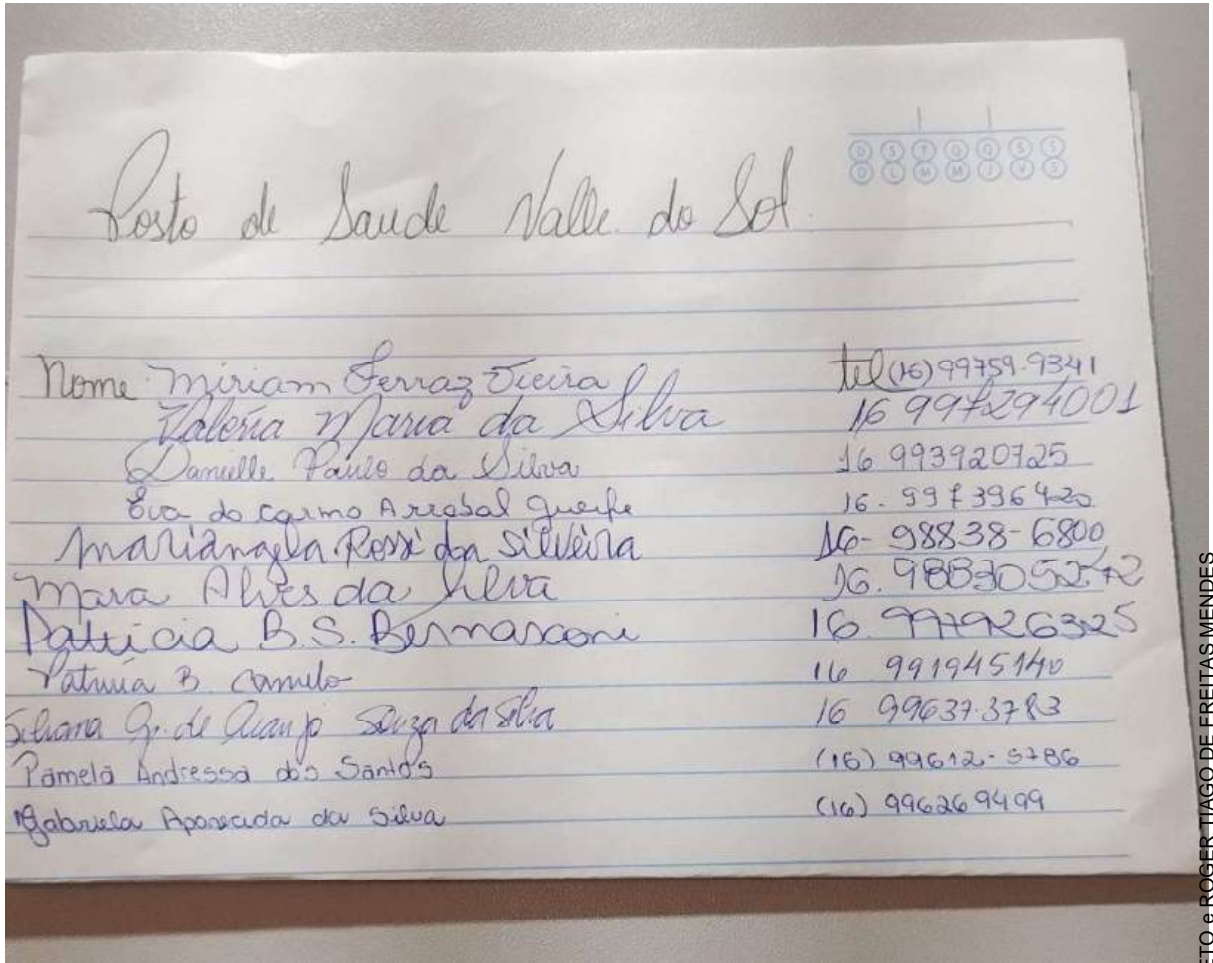 D S T Q Q S S
D L M M J V S
Posto de Saude Valle do Sol.
Nome Miriam Ferraz Vieira tel (16) 99759-9341
Valéria Maria da Silva 16 997294001
Danielle Paulo da Silva 16 993920725
Eva do Carmo Arrabal 16. 997396420
Mariângela Rossi da Silveira 16- 98838-6800
Mara Alves da Silva 16. 988305242
Patricia B. S. Bernasconi 16. 997926325
Patricia B. Camilo 16 991945140
Silvana Ap. de Araujo Souza da Silva 16 99637.3783
Pamela Andressa dos Santos (16) 99612-5786
Gabriela Aparecida da Silva (16) 996269499
ETO e ROGER TIAGO DE FREITAS MENDES